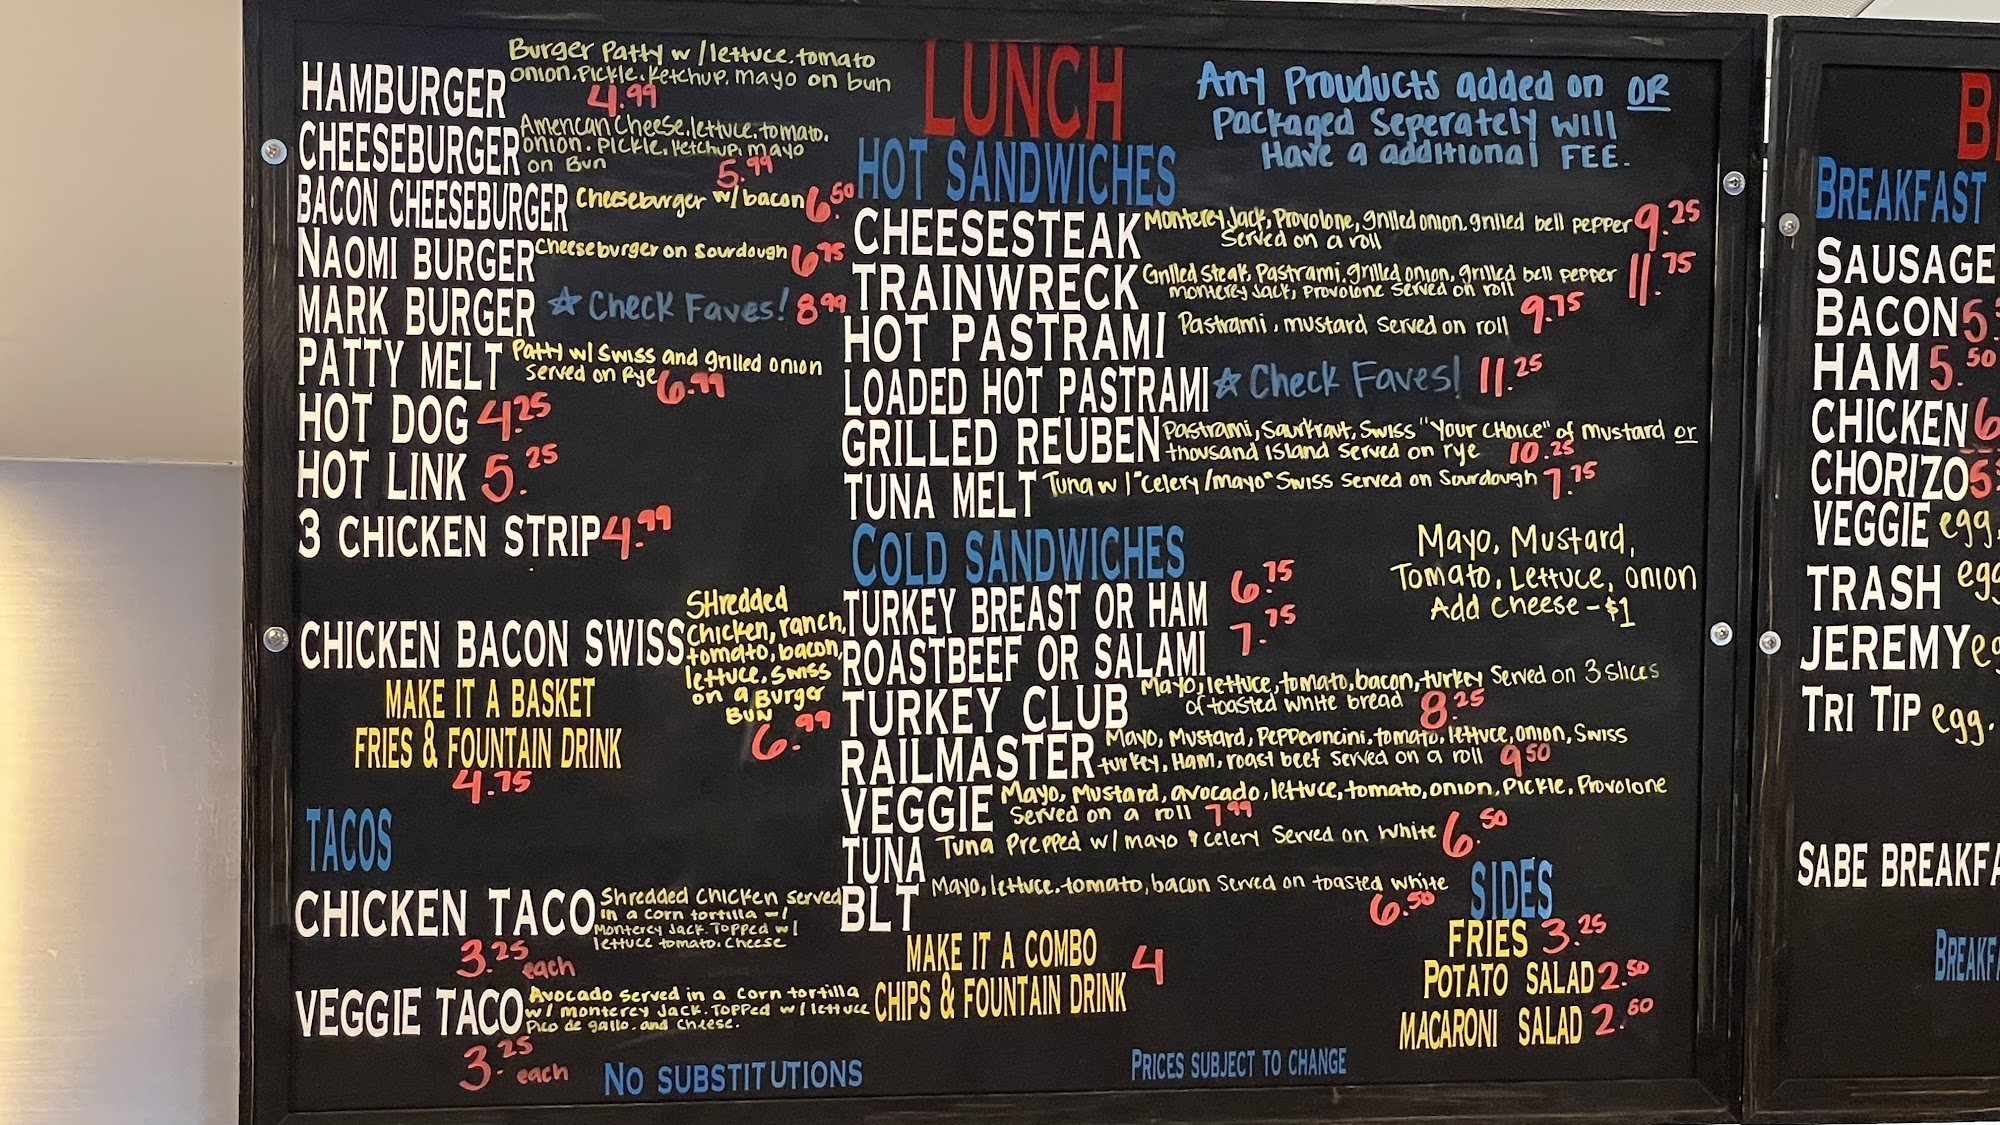 HAMBURGER Burger Patty w/lettuce.tomato
onion.pickle.ketchup, mayo on bun
4.99
CHEESEBURGER American Cheese.lettuce.tomato.
onion. pickle, ketchup, mayo
on Bun 5.99
BACON CHEESEBURGER Cheeseburger w/bacon 6.50
NAOMI BURGER Cheeseburger on Sourdough 6.75
MARK BURGER ☆ Check Faves! 8.99
PATTY MELT Patty w/ Swiss and grilled onion
served on Rye 6.99
HOT DOG 4.25
HOT LINK 5.25
3 CHICKEN STRIP 4.99
CHICKEN BACON SWISS SHredded
Chicken, ranch,
tomato, bacon,
lettuce, Swiss
on a Burger
BUN
6.99
MAKE IT A BASKET
FRIES & FOUNTAIN DRINK
4.75
TACOS
CHICKEN TACO Shredded Chicken served
in a corn tortilla w/
Monterey Jack. Topped w/
lettuce tomato. cheese
3.25 each
VEGGIE TACO Avocado served in a corn tortilla
w/ monterey Jack. Topped w/ lettuce
Pico de gallo. and Cheese.
3.25 each
NO SUBSTITUTIONS
LUNCH
Any Prouducts added on OR
Packaged Seperately will
Have a additional FEE.
HOT SANDWICHES
CHEESESTEAK Monterey Jack, Provolone, grilled onion, grilled bell pepper 9.25
Served on a roll
TRAINWRECK Grilled Steak, Pastrami, grilled onion, grilled bell pepper 11.75
monterey Jack, provolone served on roll
HOT PASTRAMI Pastrami, mustard served on roll 9.75
LOADED HOT PASTRAMI ☆ Check Faves! 11.25
GRILLED REUBEN Pastrami, Saurkraut, Swiss "Your CHoice" of mustard or
thousand island served on rye 10.25
TUNA MELT Tuna w/ "celery/mayo" Swiss served on Sourdough 7.75
COLD SANDWICHES
Mayo, Mustard,
Tomato, Lettuce, onion
Add Cheese - $1
TURKEY BREAST OR HAM 6.75
ROASTBEEF OR SALAMI 7.75
TURKEY CLUB Mayo, lettuce, tomato, bacon, turkey Served on 3 Slices
of toasted white bread 8.25
RAILMASTER Mayo, Mustard, Pepperoncini, tomato, lettuce, onion, Swiss
turkey, Ham, roast beef served on a roll 9.50
VEGGIE Mayo, Mustard, avocado, lettuce, tomato, onion, Pickle, Provolone
Served on a roll 7.99
TUNA Tuna Prepped w/ mayo & celery Served on white 6.50
BLT Mayo, lettuce, tomato, bacon Served on toasted white
6.50
MAKE IT A COMBO
CHIPS & FOUNTAIN DRINK 4
SIDES
FRIES 3.25
POTATO SALAD 2.50
MACARONI SALAD 2.50
PRICES SUBJECT TO CHANGE
BREAKFAST
SAUSAGE
BACON 5.
HAM 5.50
CHICKEN 6
CHORIZO 5
VEGGIE egg,
TRASH egg
JEREMY eg
TRI TIP egg.
SABE BREAKFA
BREAKF